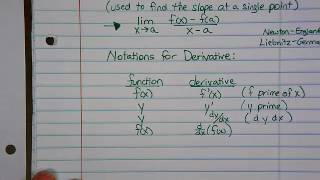 (used to find the slope at a single point)
→ lim x→a f(x) - f(a) / x - a
Newton-England
Liebnitz-German
Notations for Derivative:
function derivative
f(x) f'(x) (f prime of x)
y y' (y prime)
y dy/dx (d y dx)
f(x) d/dx (f(x))